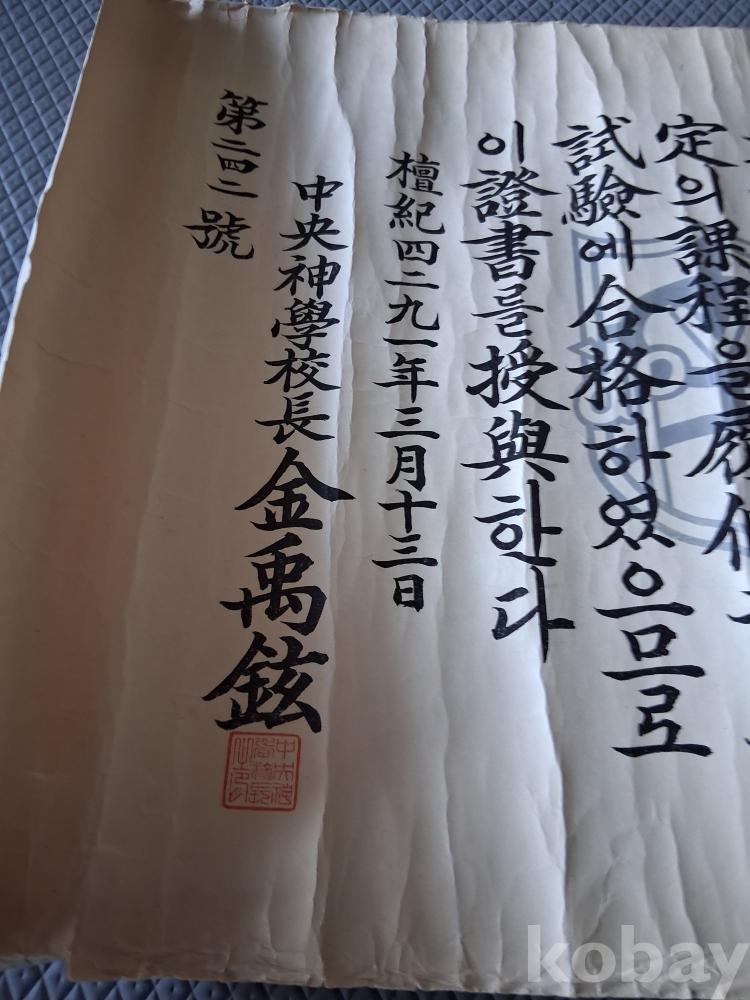 定의課程을履修
試驗에合格하였으므로
이證書를授與한다
檀紀四二九一年三月十三日
中央神學校長 金禹鉉
第二四二號
kobay